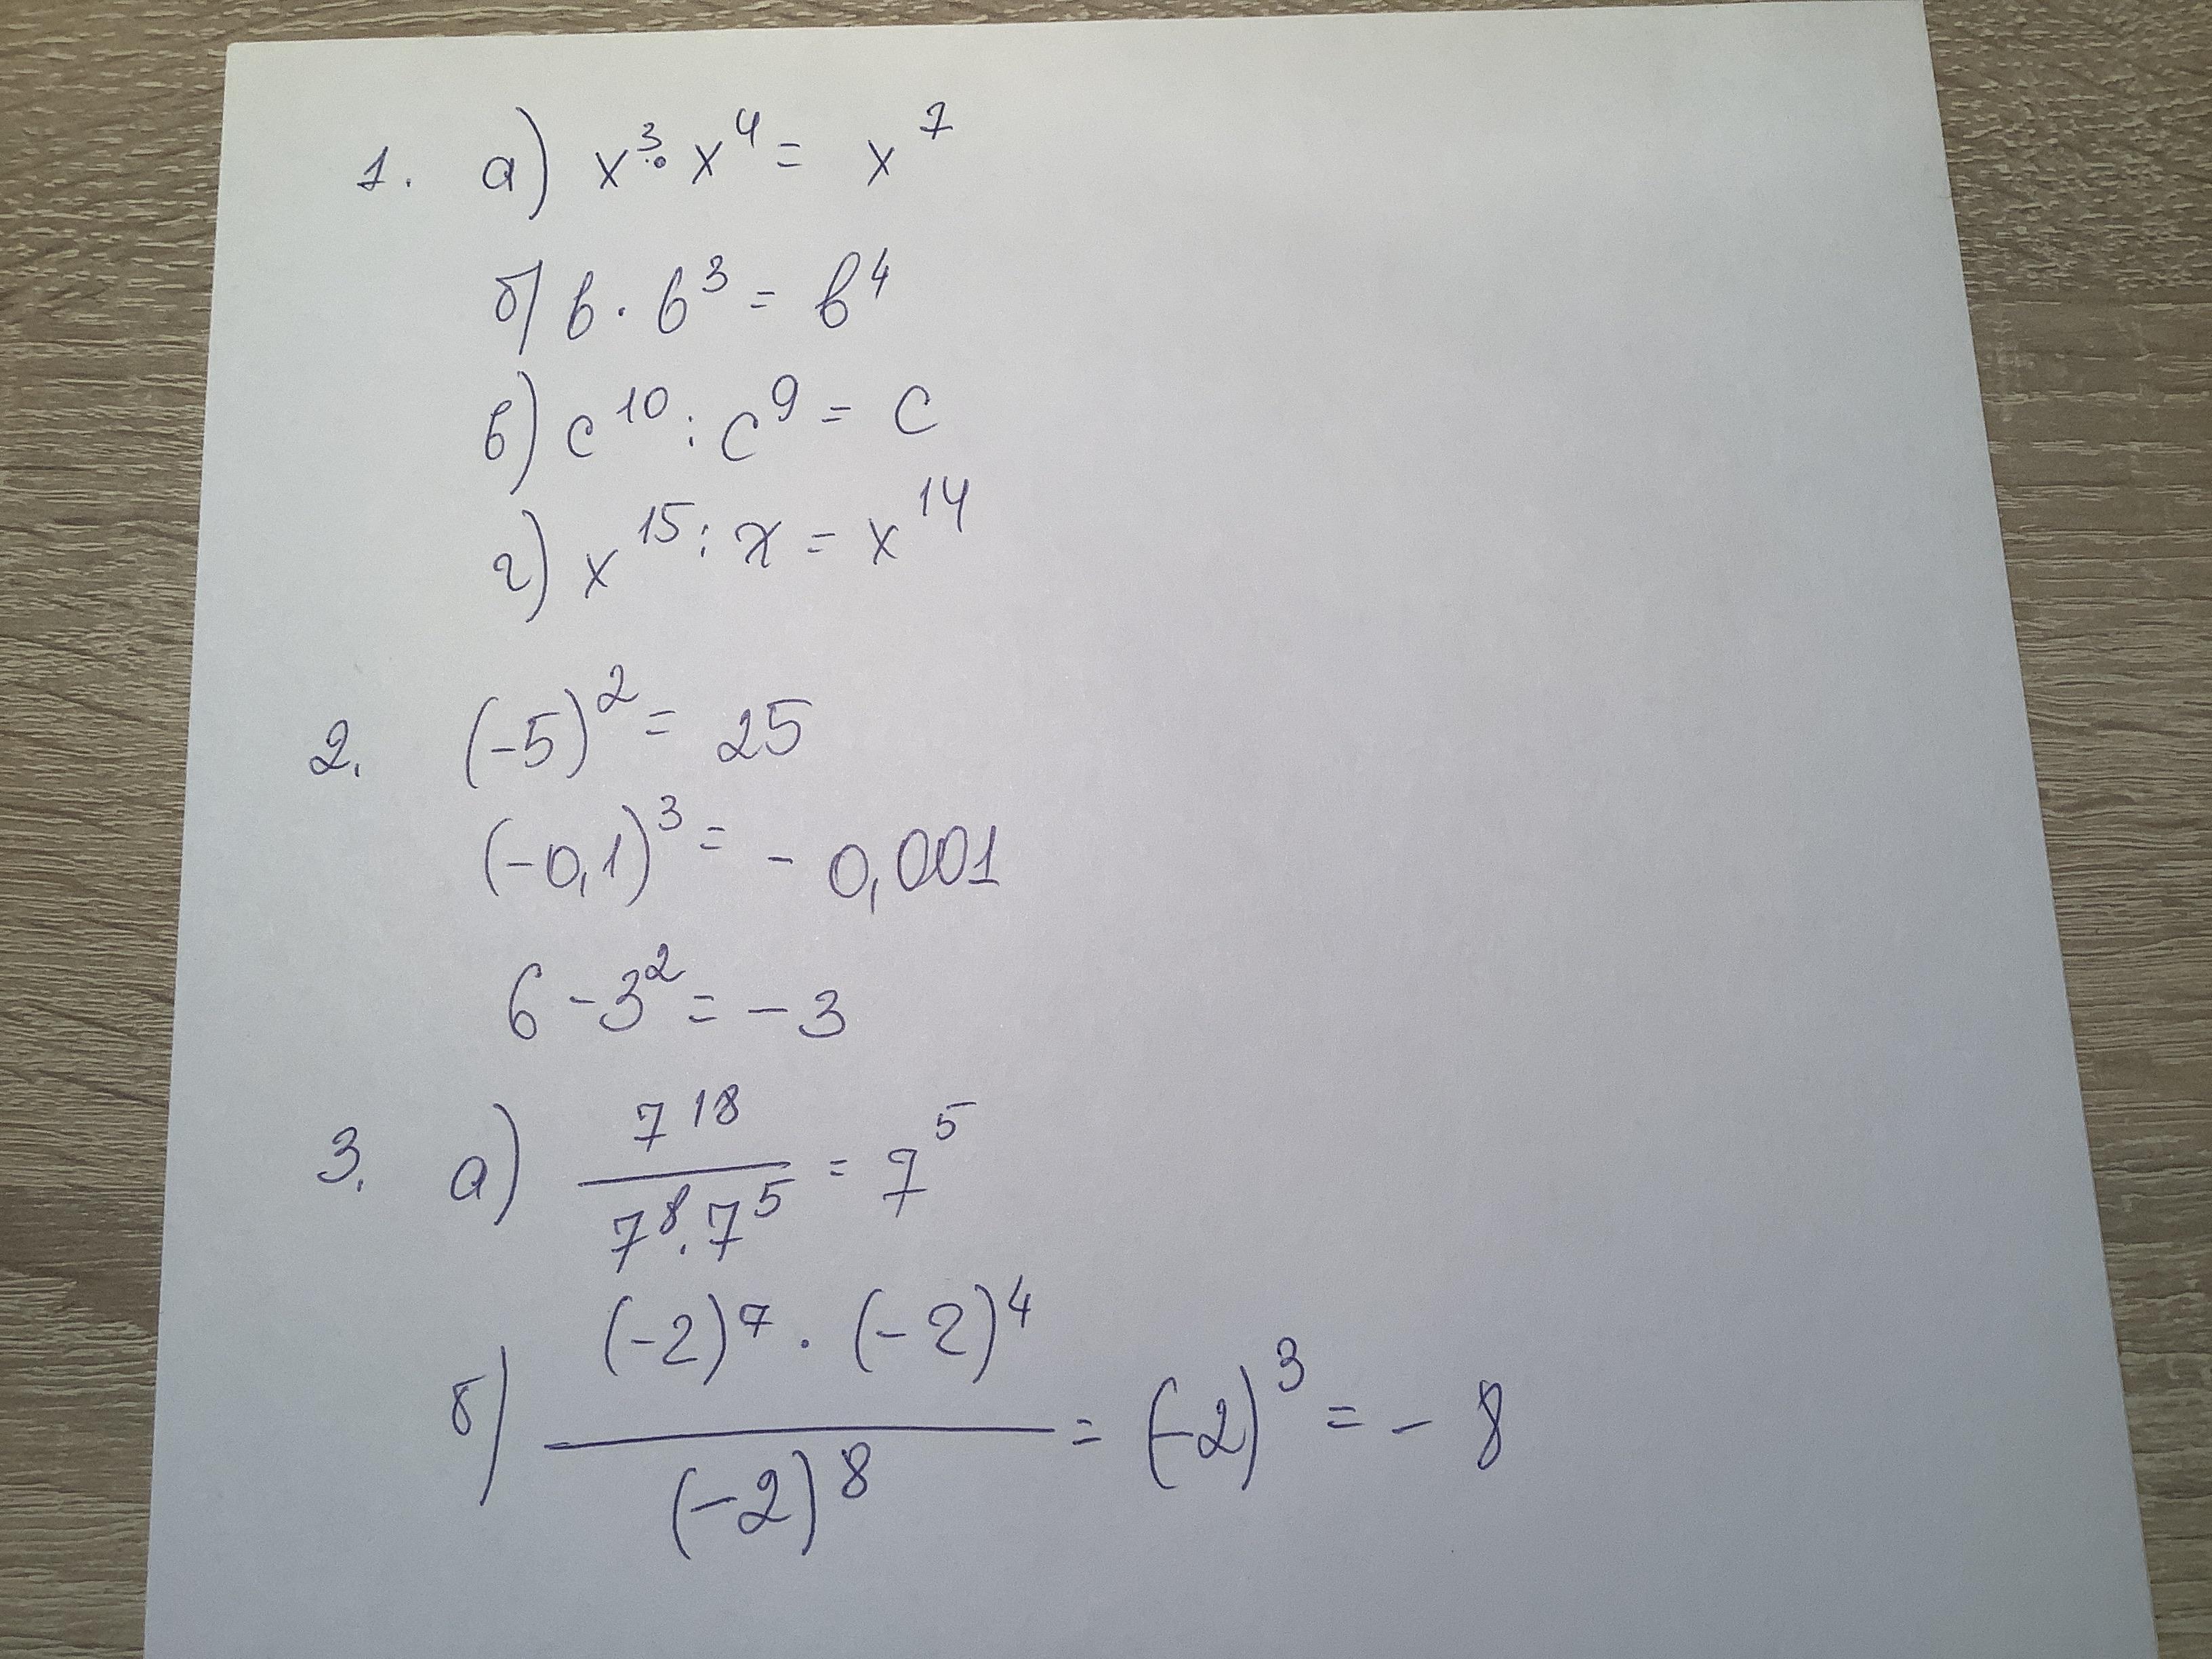 1. а) x³·x⁴ = x⁷
б) b·b³ = b⁴
в) c¹⁰ : c⁹ = c
г) x¹⁵ : x = x¹⁴
2. (-5)² = 25
(-0,1)³ = -0,001
6 - 3² = -3
3. а) 7¹⁸ / (7⁸·7⁵) = 7⁵
б) (-2)⁷·(-2)⁴ / (-2)⁸ = (-2)³ = -8